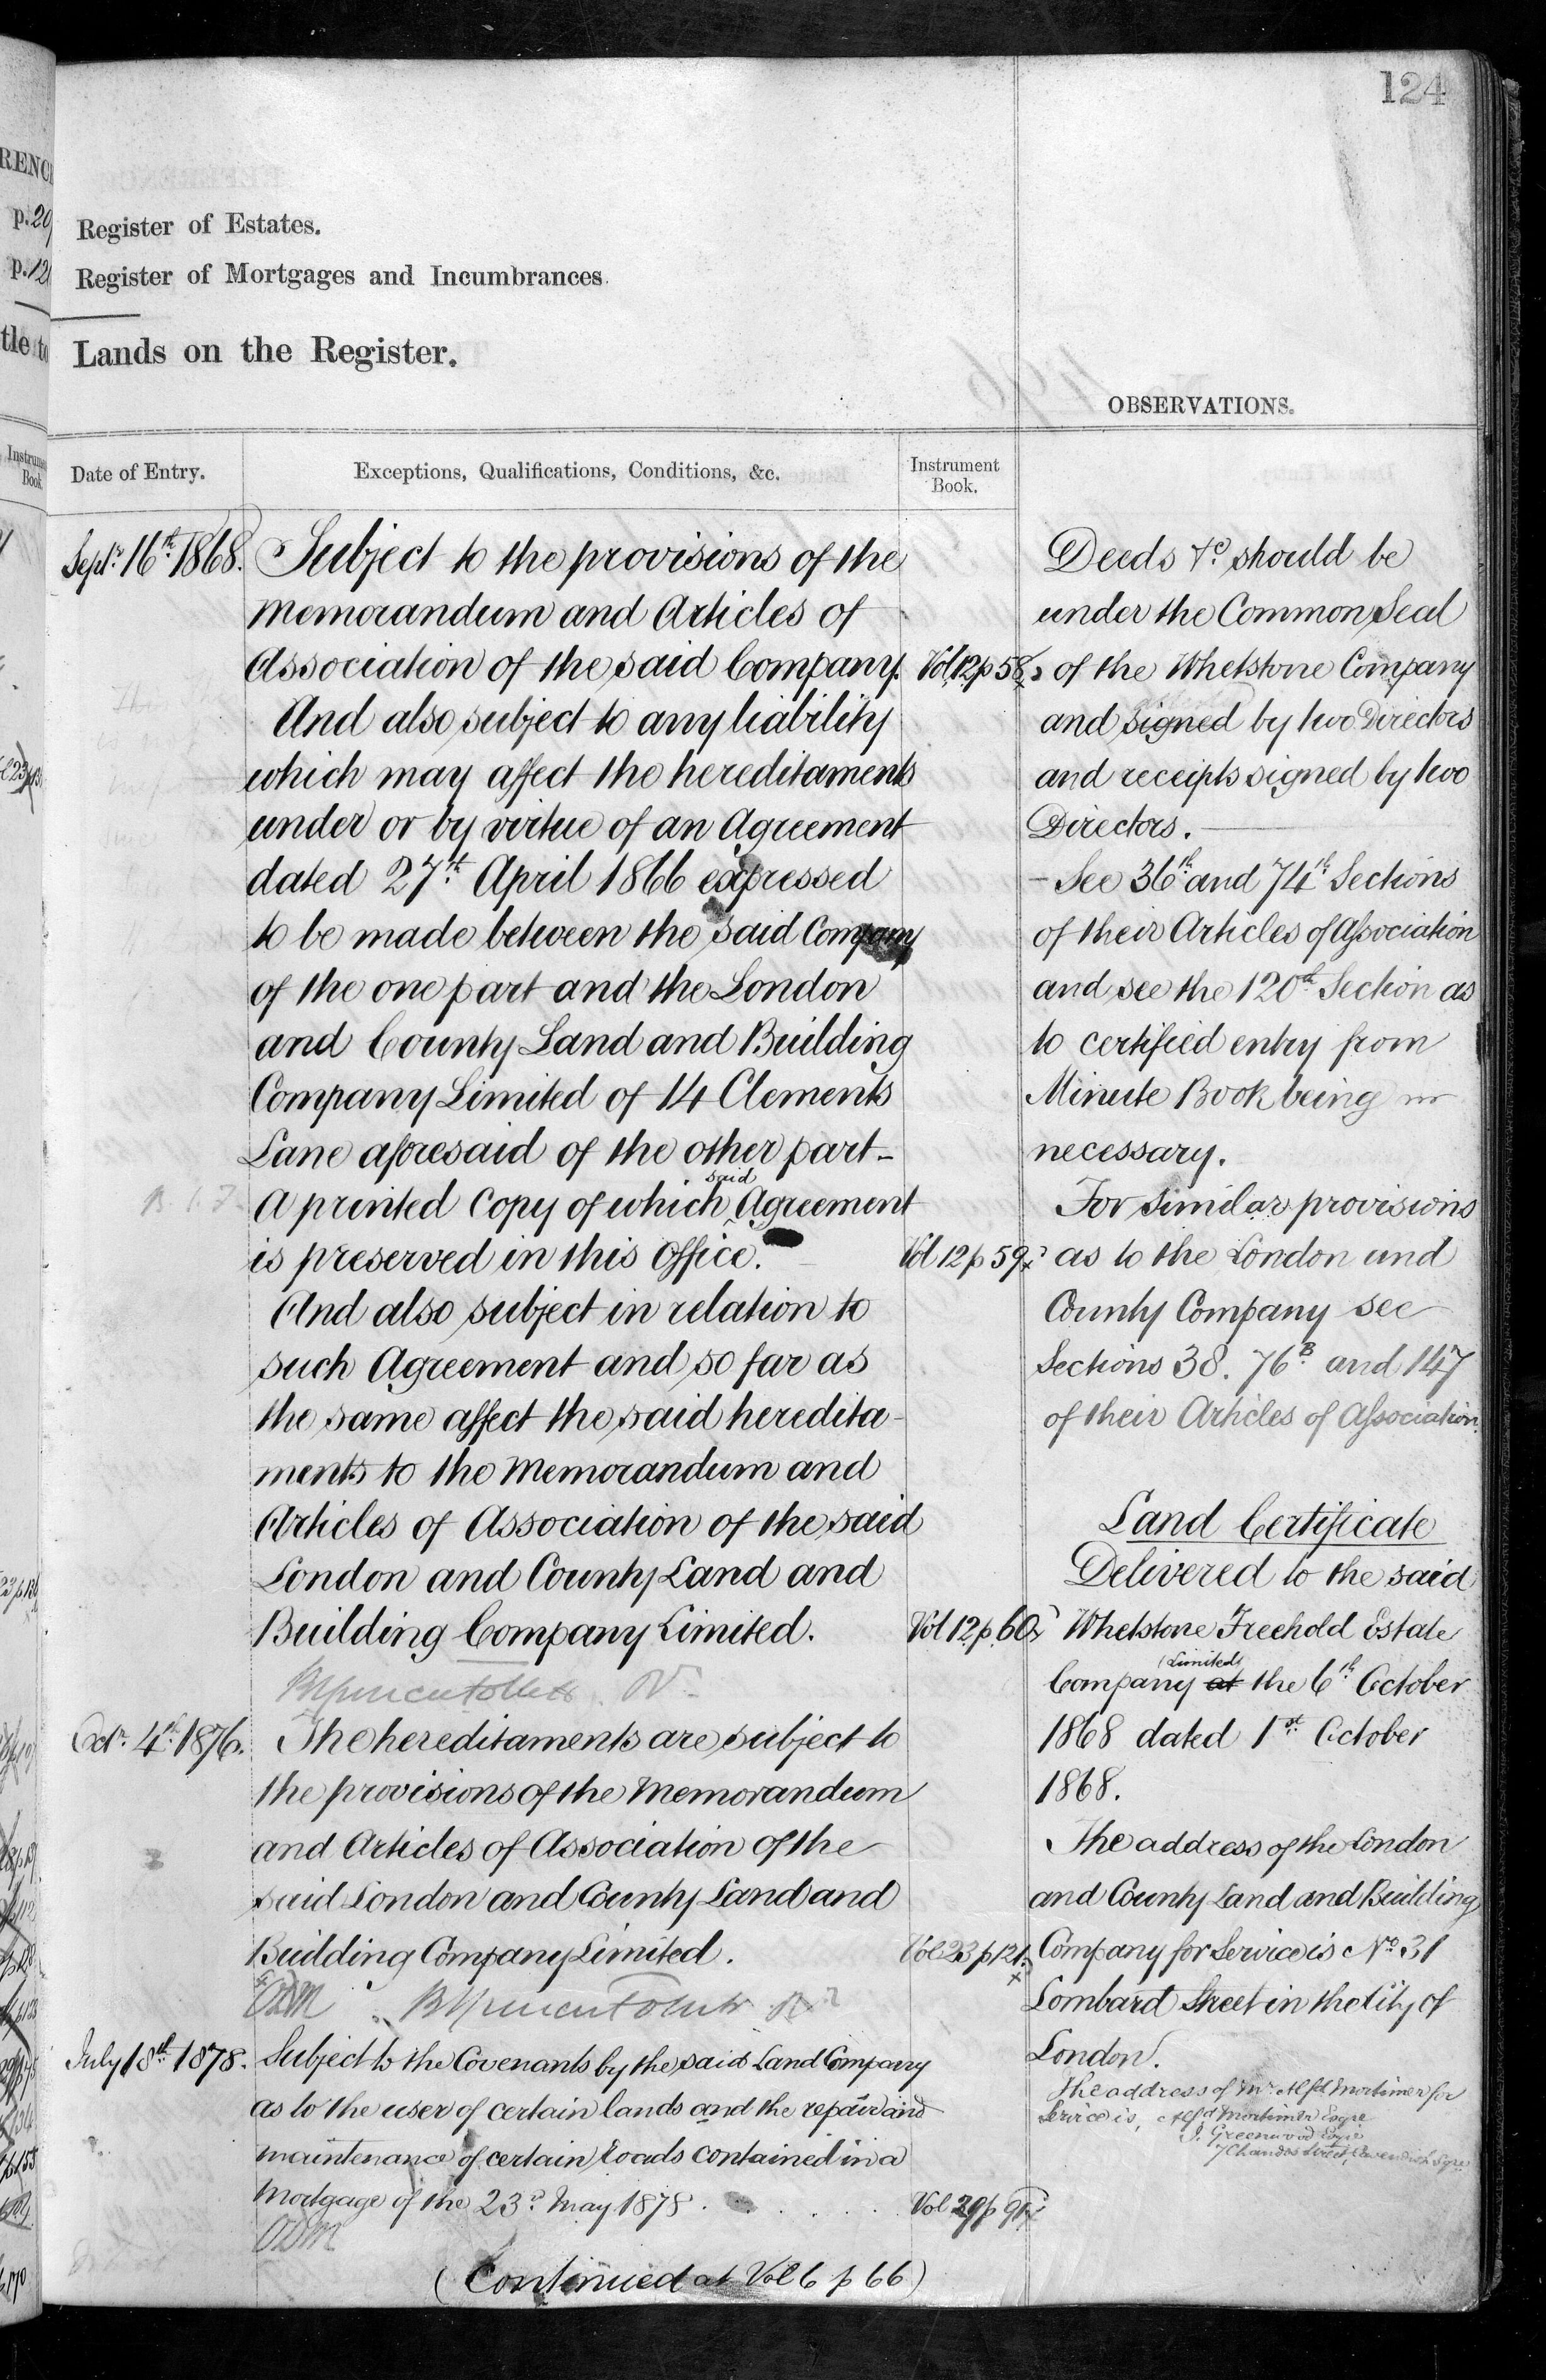 124
RENC
p. 29
p. 12
tle to
Register of Estates.
Register of Mortgages and Incumbrances.
Lands on the Register.
OBSERVATIONS.
Date of Entry.
Exceptions, Qualifications, Conditions, &c.
Instrument
Book.
Sepr. 16th 1868.
Subject to the provisions of the
Memorandum and Articles of
Association of the said Company.
Vol 12 p 58
And also subject to any liability
which may affect the hereditaments
under or by virtue of an Agreement
dated 27th April 1866 expressed
to be made between the said Company
of the one part and the London
and County Land and Building
Company Limited of 14 Clements
Lane aforesaid of the other part -
said
A printed Copy of which Agreement
is preserved in this Office.
Vol 12 p 59
And also subject in relation to
such Agreement and so far as
the same affect the said heredita-
ments to the Memorandum and
Articles of Association of the said
London and County Land and
Building Company Limited.
Vol 12 p 60
Octr. 4th 1876.
The hereditaments are subject to
the provisions of the Memorandum
and Articles of Association of the
said London and County Land and
Building Company Limited.
Vol 23 p 121
July 18th 1878.
Subject to the Covenants by the said Land Company
as to the user of certain lands and the repair and
maintenance of certain roads contained in a
Mortgage of the 23d May 1878 . . . . .
Vol 29 p
(Continued at Vol 6 p 66)
Deeds &c should be
under the Common Seal
of the Whetstone Company
and signed by two Directors
and receipts signed by two
Directors.
- See 36th and 74th Sections
of their Articles of Association
and see the 120th Section as
to certified entry from
Minute Book being
necessary.
For similar provisions
as to the London and
County Company see
Sections 38. 76B and 147
of their Articles of Association.
Land Certificate
Delivered to the said
Whetstone Freehold Estate
(Limited)
Company at the 6th October
1868 dated 1st October
1868.
The address of the London
and County Land and Building
Company for Service is No 31
Lombard Street in the City of
London.
The address of Mr Alfd Mortimer for
Service is, Alfd Mortimer Esqre
J. Greenwood Esqre
7 Chandos Street, Cavendish Sqre